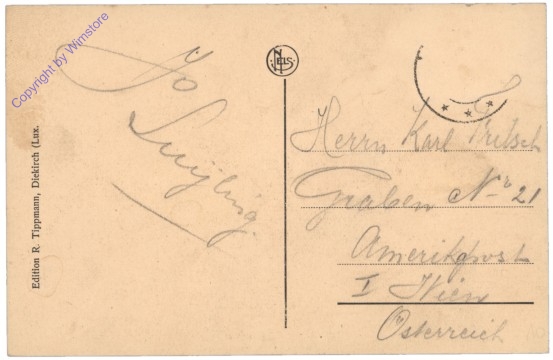 Copyright by Winstore
Edition R. Tippmann, Diekirch (Lux.
NELS
Herrn Karl Fritsch
Graben Nr 21
Amerikpost
I Wien
Österreich